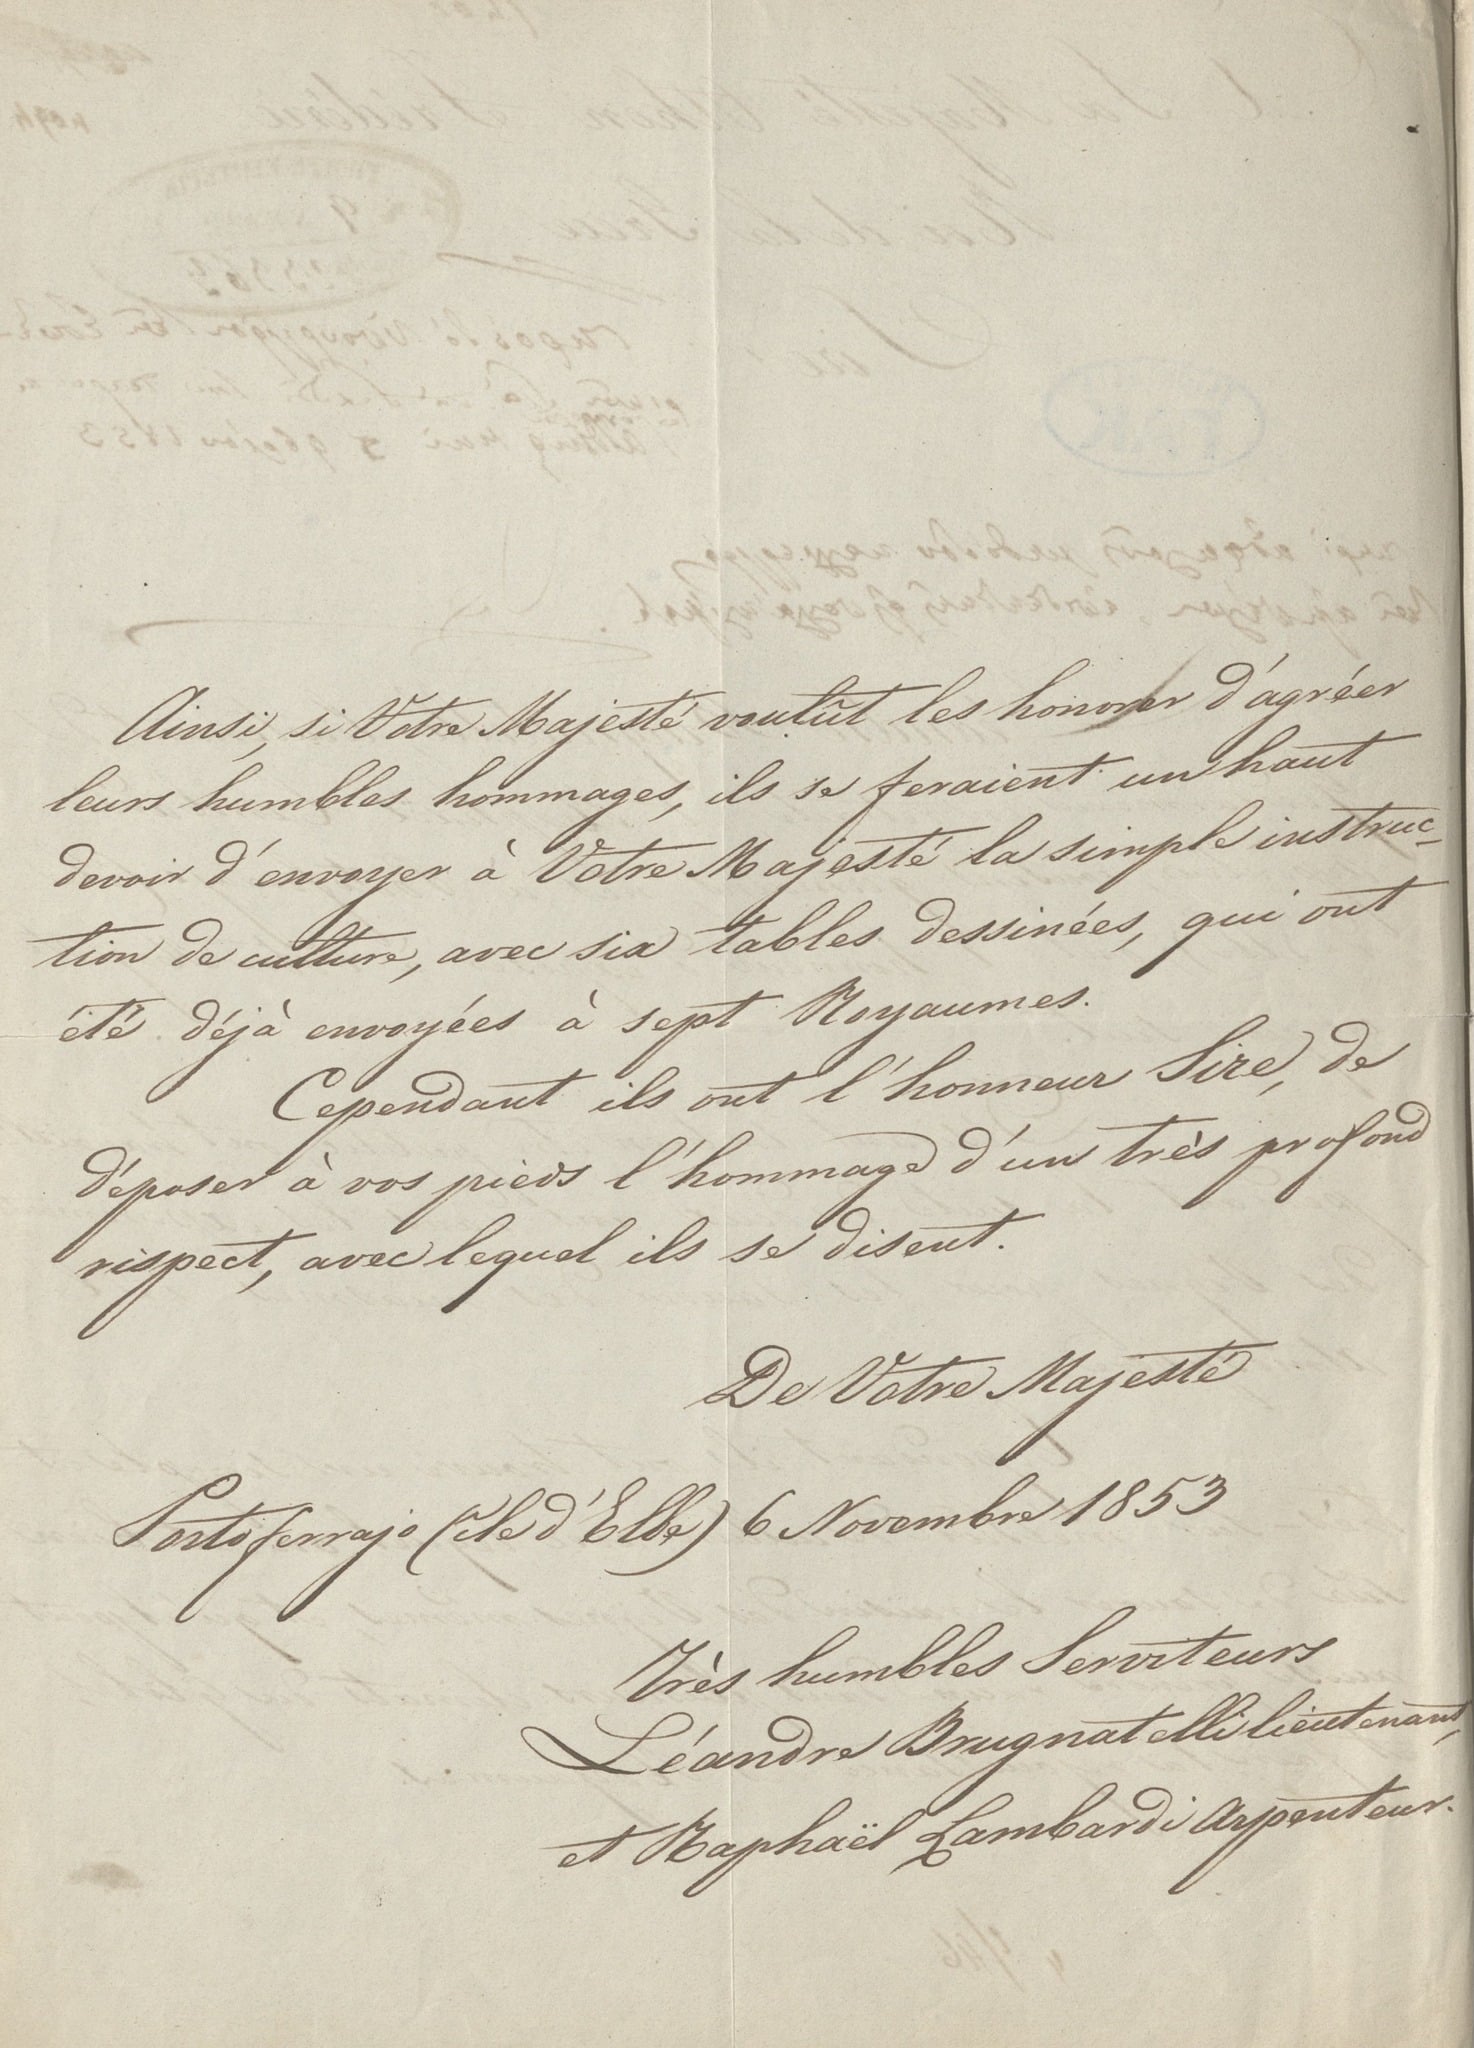 Ainsi, si Votre Majesté voulût les honorer d'agréer
leurs humbles hommages, ils se feraient un haut
devoir d'envoyer à Votre Majesté la simple instruc-
tion de culture, avec six tables dessinées, qui ont
été déjà envoyées à sept Royaumes.
Cependant ils ont l'honneur Sire, de
déposer à vos pieds l'hommage d'un très profond
rispect, avec lequel ils se disent.
De Votre Majesté
Portoferrajo (île d'Elbe) 6 Novembre 1853
Très humbles Serviteurs
Léandre Brugnatelli lieutenant,
et Raphaël Lambardi Arpenteur.